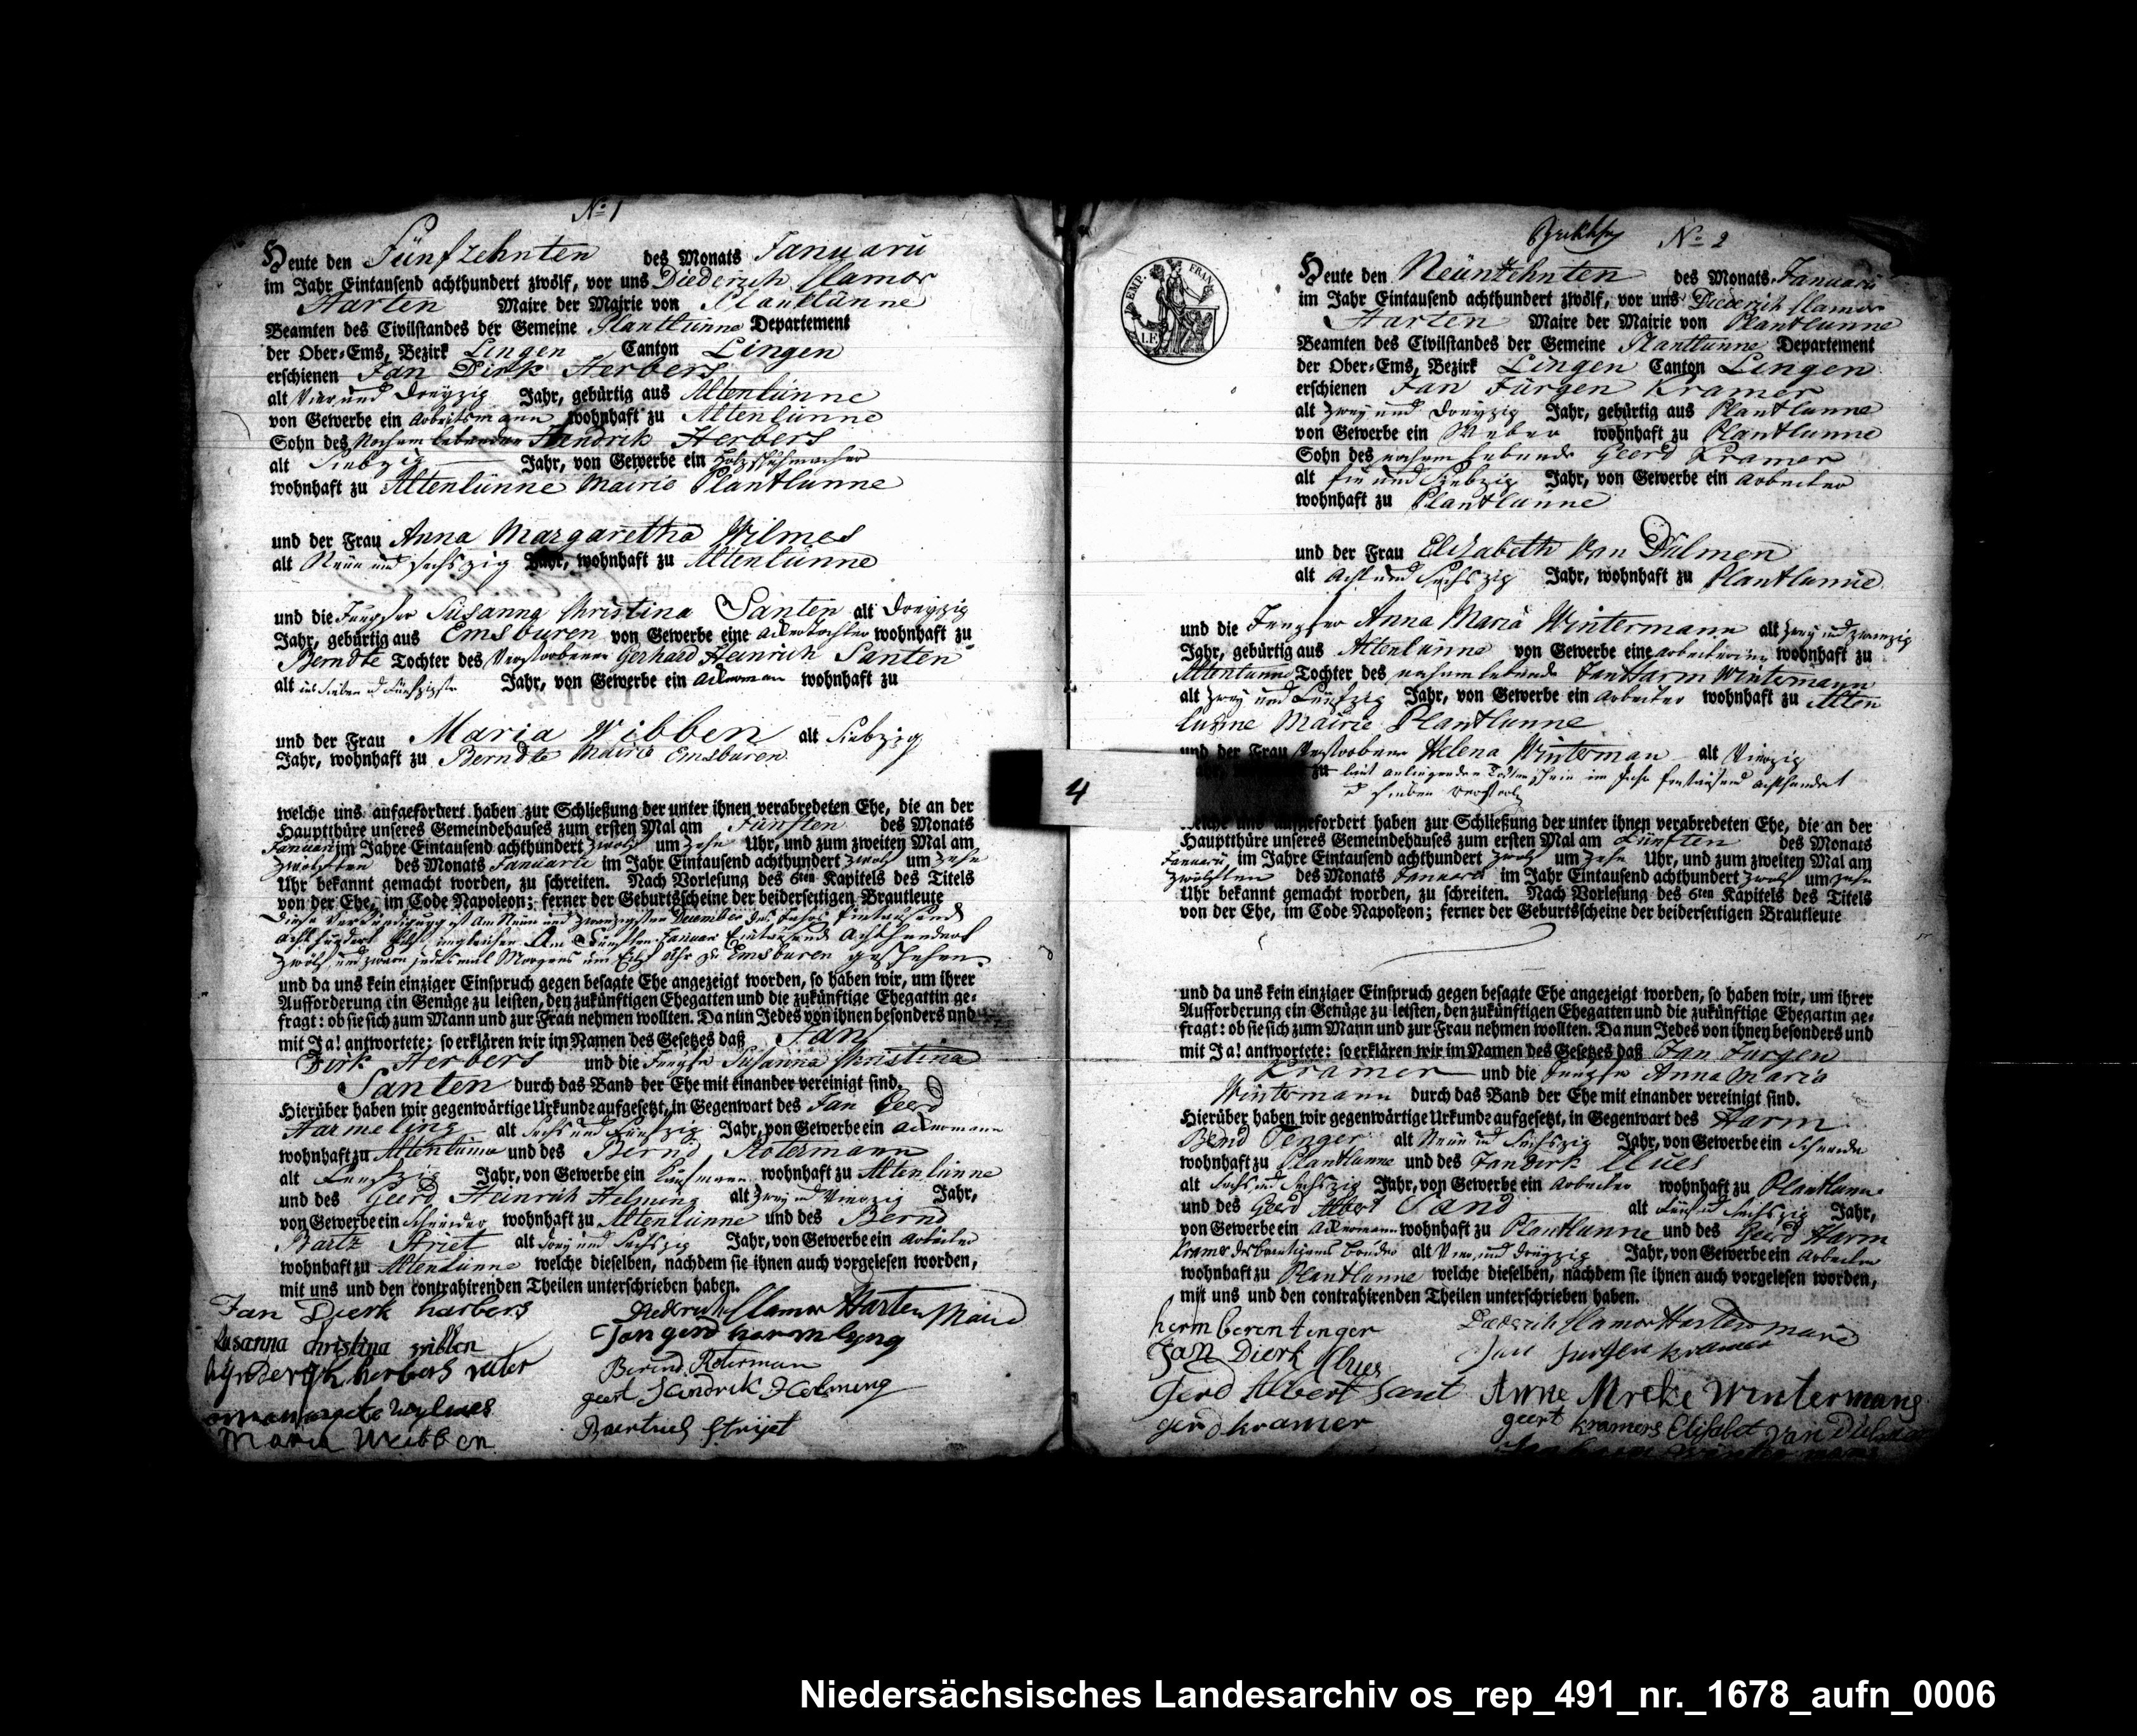 No 1
Heute den Fünfzehnten des Monats Januarii
im Jahr Eintausend achthundert zwölf, vor uns Diederich Clamor
Harten Maire der Mairie von Plantlünne
Beamten des Civilstandes der Gemeine Plantlünne Departement
der Ober-Ems, Bezirk Lingen Canton Lingen
erschienen Jan Dirk Herbers
alt Vier und Dreyzig Jahr, gebürtig aus Altenlünne
von Gewerbe ein Arbeitsmann wohnhaft zu Altenlünne
Sohn des Nochem lebenden Hendrik Herbers
alt Siebzig Jahr, von Gewerbe ein
wohnhaft zu Altenlünne Mairie Plantlunne
und der Frau Anna Margaretha Wilmes
alt Neün und sechszig Jahr, wohnhaft zu Altenlünne
und die Jungfer Susanna Christina Santen alt Dreyzig
Jahr, gebürtig aus Emsbüren von Gewerbe eine wohnhaft zu
Berndte Tochter des Verstorbenen Gerhard Heinrich Santen
alt Jahr, von Gewerbe ein Ackerman wohnhaft zu
und der Frau Maria Wibben alt Siebzig
Jahr, wohnhaft zu Berndte Mairie Emsbüren
welche uns aufgefordert haben zur Schließung der unter ihnen verabredeten Ehe, die an der
Hauptthüre unseres Gemeindehauses zum ersten Mal am Fünften des Monats
Januarii im Jahre Eintausend achthundert zwölf um zehn Uhr, und zum zweiten Mal am
Zwölften des Monats Januarii im Jahr Eintausend achthundert zwölf um zehn
Uhr bekannt gemacht worden, zu schreiten. Nach Vorlesung des 6ten Kapitels des Titels
von der Ehe, im Code Napoleon; ferner der Geburtsscheine der beiderseitigen Brautleute
Diese Verkündigung ist Am Neün und zwanzigsten December des Jahrs Eintausend
Achthundert Eilf imgleichen Am Fünften Januar Eintausend Achthundert
Zwölf und zwarn jedesmal Morgens um Eilf Uhr zu Emsbüren geschehen.
und da uns kein einziger Einspruch gegen besagte Ehe angezeigt worden, so haben wir, um ihrer
Aufforderung ein Genüge zu leisten, den zukünftigen Ehegatten und die zukünftige Ehegattin ge-
fragt: ob sie sich zum Mann und zur Frau nehmen wollten. Da nun Jedes von ihnen besonders und
mit Ja! antwortete: so erklären wir im Namen des Gesetzes daß Jan
Dirk Herbers und die Jungfer Susanna Christina
Santen durch das Band der Ehe mit einander vereinigt sind.
Hierüber haben wir gegenwärtige Urkunde aufgesetzt, in Gegenwart des Jan Geerd
Harmeling alt Sechs und Fünfzig Jahr, von Gewerbe ein Ackermann
wohnhaft zu Altenlünne und des Bernd Rotermann
alt Fünfzig Jahr, von Gewerbe ein Kaufmann wohnhaft zu Altenlünne
und des Geerd Heinrich Helming alt Zwey und Vierzig Jahr,
von Gewerbe ein Schneider wohnhaft zu Altenlünne und des Bernd
Bartz Striet alt Drey und Sechszig Jahr, von Gewerbe ein Arbeiter
wohnhaft zu Altenlünne welche dieselben, nachdem sie ihnen auch vorgelesen worden,
mit uns und den contrahirenden Theilen unterschrieben haben.
Jan Dierk harbers Diederich Clamor Harten Maire
susanna christina wibben Jan gerd harmlyng
herbers vater Berend Roterman
geert Hendrik Helming
Maria Wibben striet
No 2
Heute den Neünzehnten des Monats Januarii
im Jahr Eintausend achthundert zwölf, vor uns Diederich Clamor
Harten Maire der Mairie von Plantlunne
Beamten des Civilstandes der Gemeine Plantlunne Departement
der Ober-Ems, Bezirk Lingen Canton Lingen
erschienen Jan Jürgen Kramer
alt Zwey und Dreyzig Jahr, gebürtig aus Plantlunne
von Gewerbe ein Weber wohnhaft zu Plantlunne
Sohn des nochem lebende Geerd Kramer
alt Ein und Siebzig Jahr, von Gewerbe ein Arbeiter
wohnhaft zu Plantlunne
und der Frau Elizabeth Van Dülmen
alt Acht und Sechszig Jahr, wohnhaft zu Plantlunne
und die Jungfer Anna Maria Wintermann alt Zwey und zwanzig
Jahr, gebürtig aus Altenlünne von Gewerbe eine Arbeiterinn wohnhaft zu
Altenlunne Tochter des nochem lebende Jan Harm Wintermann
alt Zwey und Fünfzig Jahr, von Gewerbe ein Arbeiter wohnhaft zu Alten
lunne Mairie Plantlunne
und der Frau Verstorbene Helena Winterman alt Vierzig
zu laut anliegenden Todtenschein im Jahr Eintausend Achthundert
sieben verstorben
welche uns aufgefordert haben zur Schließung der unter ihnen verabredeten Ehe, die an der
Hauptthüre unseres Gemeindehauses zum ersten Mal am Fünften des Monats
Januarii im Jahre Eintausend achthundert zwölf um zehn Uhr, und zum zweiten Mal am
Zwölften des Monats Januarii im Jahr Eintausend achthundert zwölf um zehn
Uhr bekannt gemacht worden, zu schreiten. Nach Vorlesung des 6ten Kapitels des Titels
von der Ehe, im Code Napoleon; ferner der Geburtsscheine der beiderseitigen Brautleute
und da uns kein einziger Einspruch gegen besagte Ehe angezeigt worden, so haben wir, um ihrer
Aufforderung ein Genüge zu leisten, den zukünftigen Ehegatten und die zukünftige Ehegattin ge-
fragt: ob sie sich zum Mann und zur Frau nehmen wollten. Da nun Jedes von ihnen besonders und
mit Ja! antwortete: so erklären wir im Namen des Gesetzes daß Jan Jurgen
Kramer und die Jungfer Anna Maria
Wintermann durch das Band der Ehe mit einander vereinigt sind.
Hierüber haben wir gegenwärtige Urkunde aufgesetzt, in Gegenwart des Harm
Bernd Tenger alt Neün und Sechszig Jahr, von Gewerbe ein Schneider
wohnhaft zu Plantlunne und des Jan Dirk Clues
alt Sechs und Sechszig Jahr, von Gewerbe ein Arbeiter wohnhaft zu Plantlunne
und des Geerd Albert Sand alt Fünf und Sechszig Jahr,
von Gewerbe ein Ackermann wohnhaft zu Plantlunne und des Geerd Harm
Kramer des Bräutigams Bruder alt Vier und Dreyzig Jahr, von Gewerbe ein Arbeiter
wohnhaft zu Plantlunne welche dieselben, nachdem sie ihnen auch vorgelesen worden,
mit uns und den contrahirenden Theilen unterschrieben haben.
herm beren tenger Diederich Clamor Harten Maire
Jan Dierk Clues Jan Jurgen kramer
Gerd Albert Sant Anne Mreke Wintermans
gerd kramer geert kramers Elisabet van
TEMP. FRAN.
4
Niedersächsisches Landesarchiv os_rep_491_nr._1678_aufn_0006